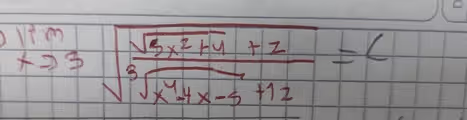 lim x→3 √( (√(5x²+4) + 2) / (∛(x⁴-4x-5) + 12) ) = (